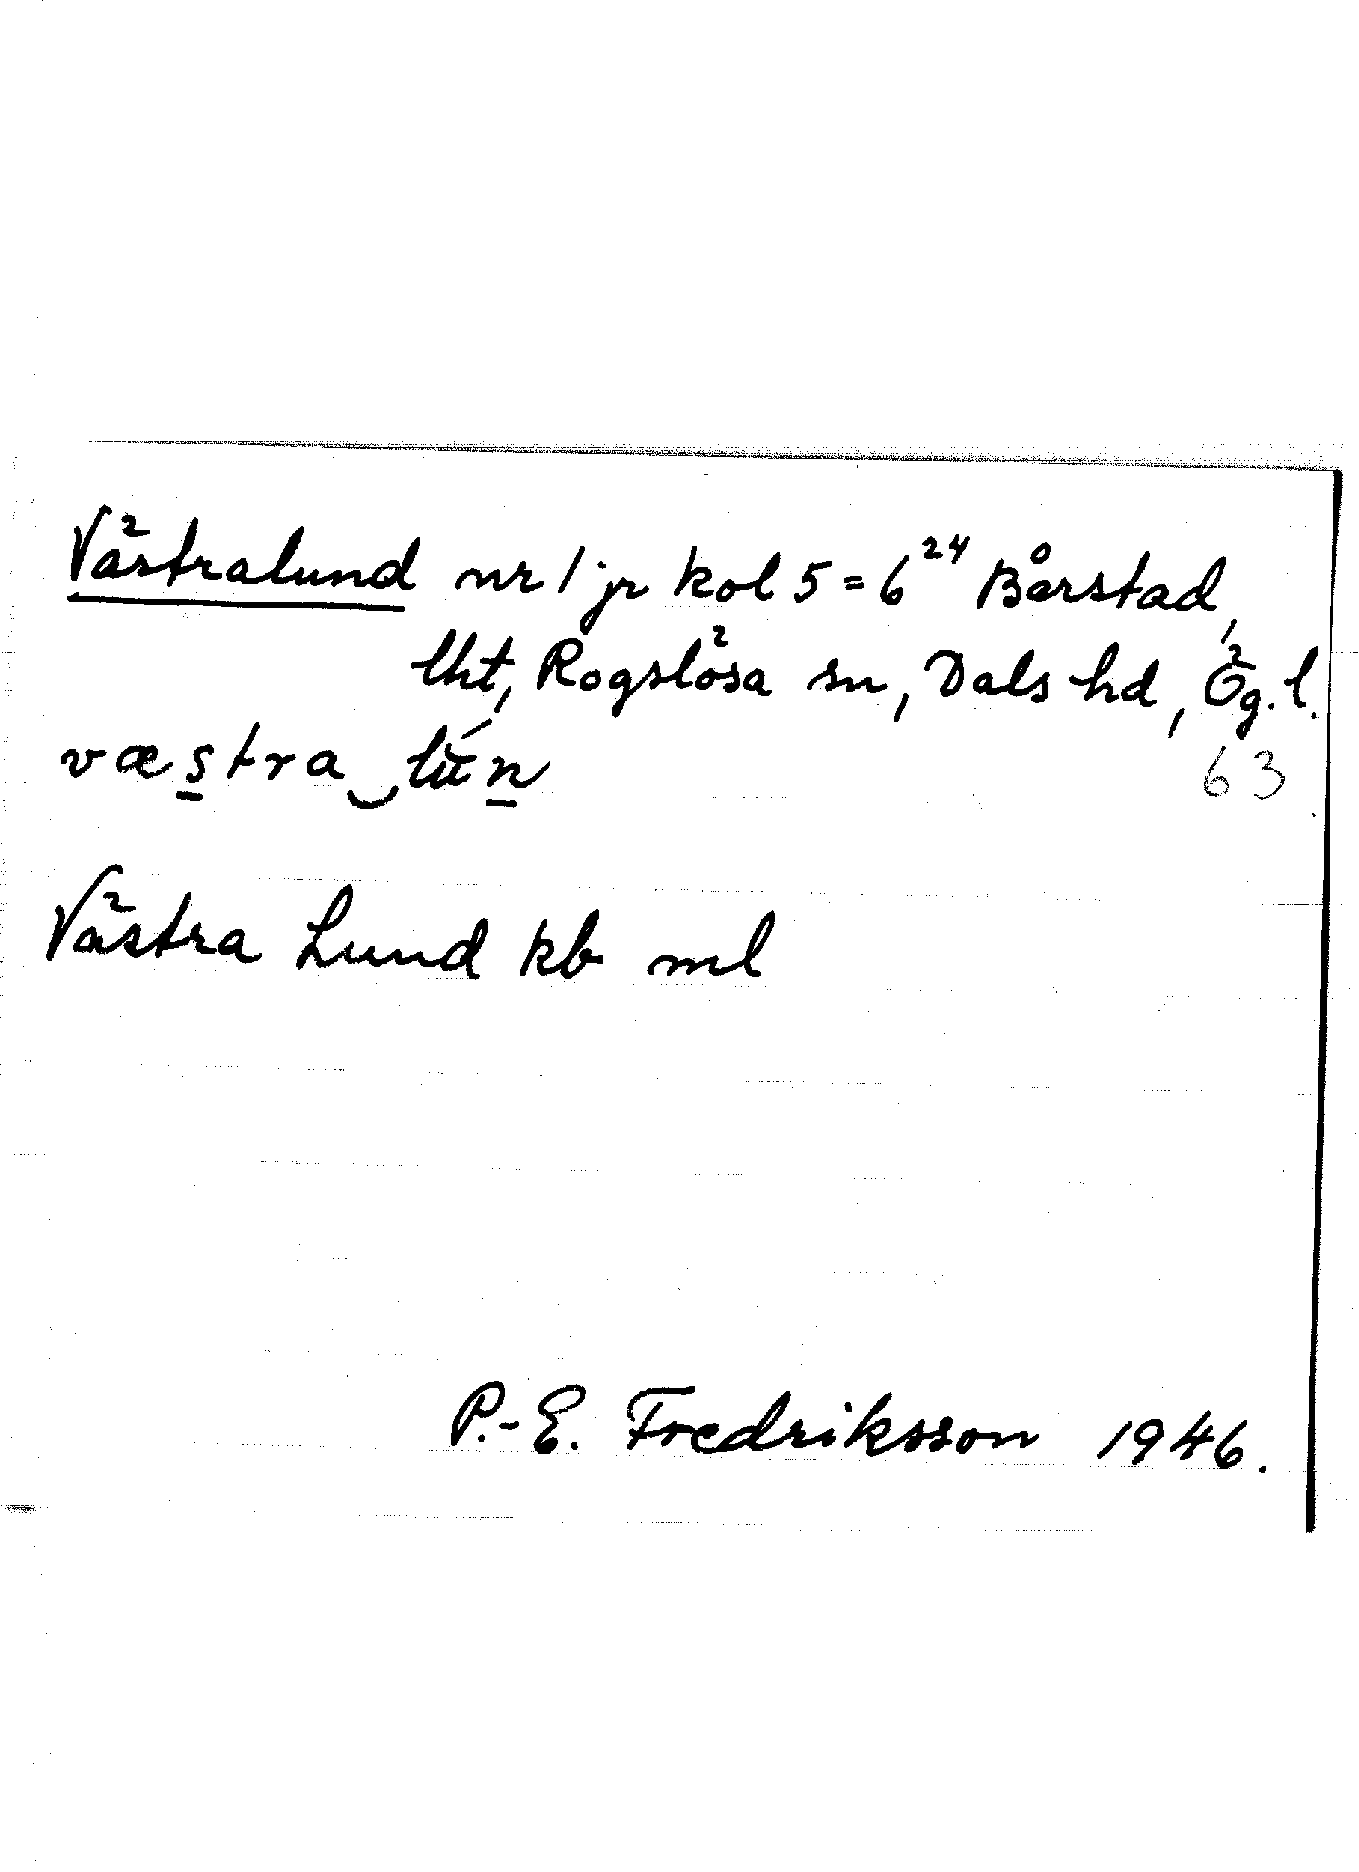 Västralund nr 1 jr kol 5 = 6²⁴ Bårstad,
lht, Rogslösa sn, Dals hd, Ög. l.
væstra‿lún
63
Västra Lund kb ml
P.-E. Fredriksson 1946.